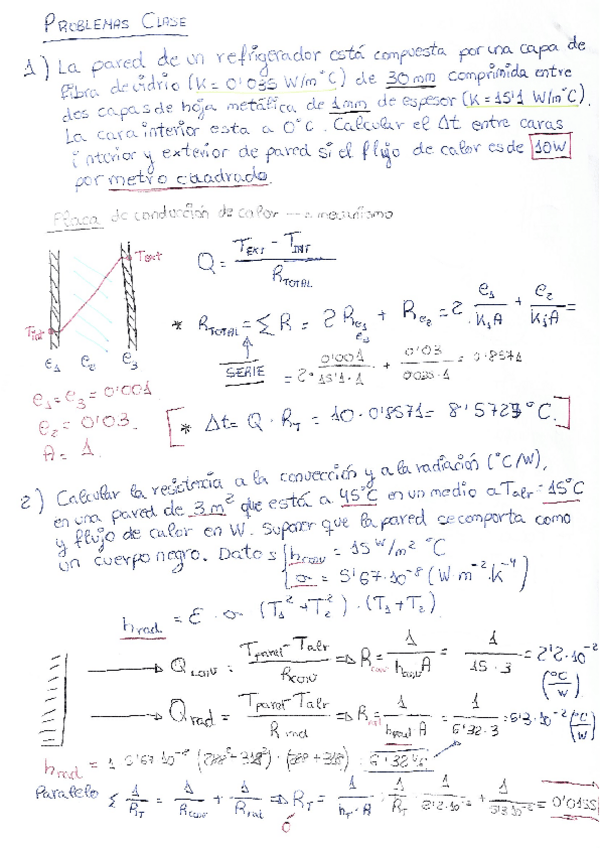 PROBLEMAS CLASE
1) La pared de un refrigerador está compuesta por una capa de
fibra de vidrio (K = 0'035 W/m°C) de 30mm comprimida entre
dos capas de hoja metálica de 1mm de espesor (K = 15'1 W/m°C).
La cara interior esta a 0°C. Calcular el Δt entre caras
interior y exterior de pared si el flujo de calor es de 10W
por metro cuadrado.
Placa de conducción de calor → mecanismo
Text
Q = (T_EXT - T_INT) / R_TOTAL
* R_TOTAL = ΣR = 2 Re₁ + Re₂ = 2 e₁/(K₁A) + e₂/(K₁A) =
e₃
SERIE
= 2 · 0'001/(15'1·1) + 0'03/(0'035·1) = 0'8571
Tint
e₁ e₂ e₃
e₁ = e₃ = 0'001
e₂ = 0'03.
A = 1.
* Δt = Q · R_T = 10 · 0'8571 = 8'5729 °C.
2) Calcular la resistencia a la convección y a la radiación (°C/W),
en una pared de 3m² que está a 45°C en un medio a Tair = 15°C
y flujo de calor en W. Suponer que la pared se comporta como
un cuerpo negro. Datos { hconv = 15 W/m² °C
σ = 5'67·10⁻⁸ (W·m⁻²·K⁻⁴)
hrad = ε · σ (T₁² + T₂²) · (T₁ + T₂)
Qconv = (Tpared - Tair) / Rconv ⇒ Rconv = 1/(hconv A) = 1/(15·3) = 2'2·10⁻² (°C/W)
Qrad = (Tpared - Tair) / Rrad ⇒ Rrad = 1/(hrad·A) = 1/(6'32·3) = 5'3·10⁻² (°C/W)
hrad = 1 · 5'67·10⁻⁸ (288² + 318²) · (288 + 318) =
Paralelo Σ 1/R_T = 1/Rconv + 1/Rrad ⇒ R_T = 1/(h_T·A)
ó
1/R_T = 1/(2'2·10⁻²) + 1/(5'3·10⁻²) = 0'0155